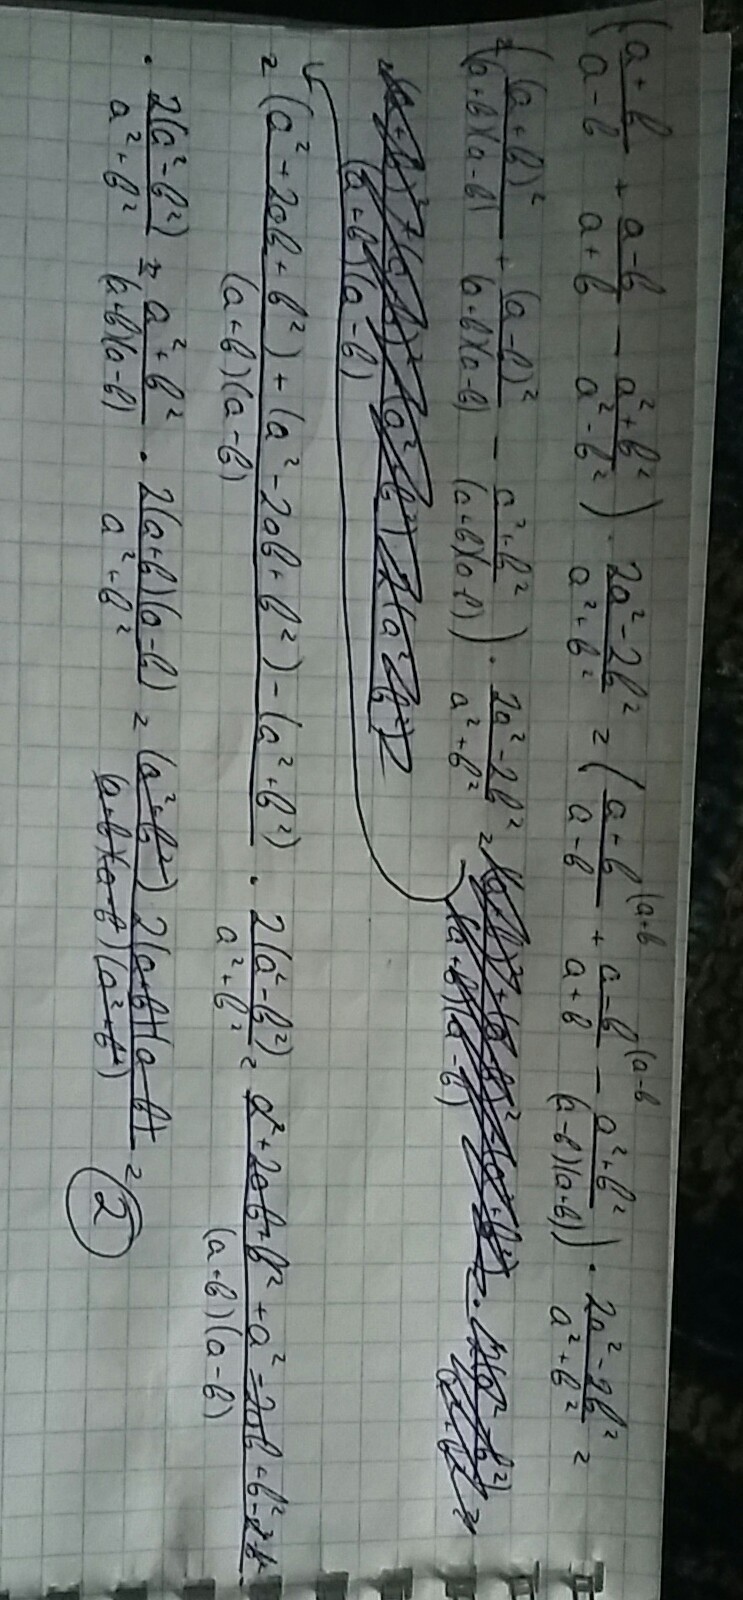 (a+b/a-b + a-b/a+b - a²+b²/a²-b²) · 2a²-2b²/a²+b² = (a+b/a-b (a+b + a-b/a+b (a-b - a²+b²/(a-b)(a+b)) · 2a²-2b²/a²+b² =
= ((a+b)²/(a+b)(a-b) + (a-b)²/(a+b)(a-b) - a²+b²/(a+b)(a-b)) · 2a²-2b²/a²+b² =
= (a²+2ab+b²)+(a²-2ab+b²)-(a²+b²)/(a+b)(a-b) · 2(a²-b²)/a²+b² = a²+2ab+b²+a²-2ab+b²-a²-b²/(a+b)(a-b)
· 2(a²-b²)/a²+b² = a²+b²/(a+b)(a-b) · 2(a+b)(a-b)/a²+b² = (a²+b²)2(a+b)(a-b)/(a+b)(a-b)(a²+b²) = 2